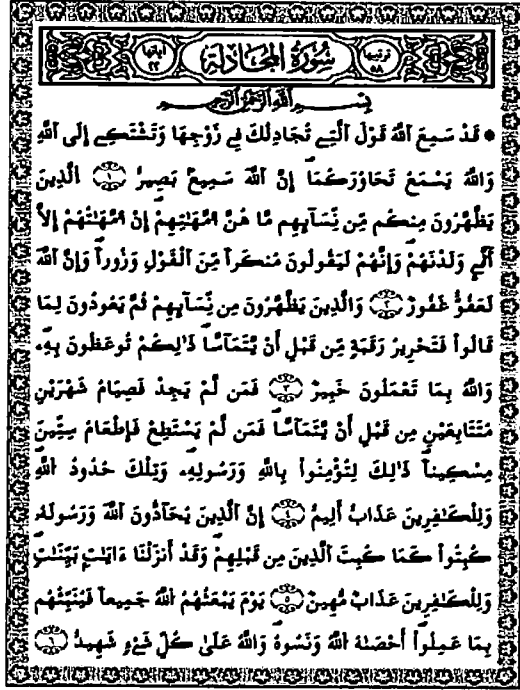 ترتيبها ٥٨ سُورَةُ المُجَادلَة آياتها ٢٢
بِسْمِ اللَّهِ الرَّحْمَٰنِ الرَّحِيمِ
• قَدْ سَمِعَ اَللَّهُ قَوْلَ اَلَّتِے تُجَادِلُكَ فِے زَوْجِهَا وَتَشْتَكِے إِلَى اَللَّهِ
وَاللَّهُ يَسْمَعُ تَحَاوُرَكُمَا إِنَّ اَللَّهَ سَمِيعٌ بَصِيرٌ ١ اَلَّذِينَ
يَظَّهَّرُونَ مِنكُم مِّن نِّسَآئِهِم مَّا هُنَّ أُمَّهَٰتِهِمْ إِنْ أُمَّهَٰتُهُمْ إِلَّا
اَلَّٰٓے وَلَدْنَهُمْ وَإِنَّهُمْ لَيَقُولُونَ مُنكَراً مِّنَ اَلْقَوْلِ وَزُوراً وَإِنَّ اَللَّهَ
لَعَفُوٌّ غَفُورٌ ٢ وَالَّذِينَ يَظَّهَّرُونَ مِن نِّسَآئِهِمْ ثُمَّ يَعُودُونَ لِمَا
قَالُواْ فَتَحْرِيرُ رَقَبَةٍ مِّن قَبْلِ أَنْ يَّتَمَآسَّا ذَٰلِكُمْ تُوعَظُونَ بِهِۦ
وَاللَّهُ بِمَا تَعْمَلُونَ خَبِيرٌ ٣ فَمَن لَّمْ يَجِدْ فَصِيَامُ شَهْرَيْنِ
مُتَتَابِعَيْنِ مِن قَبْلِ أَنْ يَّتَمَآسَّا فَمَن لَّمْ يَسْتَطِعْ فَإِطْعَامُ سِتِّينَ
مِسْكِيناً ذَٰلِكَ لِتُؤْمِنُواْ بِاللَّهِ وَرَسُولِهِۦ وَتِلْكَ حُدُودُ اُللَّهِ
وَلِلْكَٰفِرِينَ عَذَابٌ أَلِيمٌ ٤ إِنَّ اَلَّذِينَ يُحَآدُّونَ اَللَّهَ وَرَسُولَهُۥ
كُبِتُواْ كَمَا كُبِتَ اَلَّذِينَ مِن قَبْلِهِمْ وَقَدْ أَنزَلْنَا ءَايَٰتٍ بَيِّنَٰتٍ
وَلِلْكَٰفِرِينَ عَذَابٌ مُّهِينٌ ٥ يَوْمَ يَبْعَثُهُمُ اُللَّهُ جَمِيعاً فَيُنَبِّئُهُم
بِمَا عَمِلُواْ أَحْصَىٰهُ اُللَّهُ وَنَسُوهُ وَاللَّهُ عَلَىٰ كُلِّ شَےْءٍ شَهِيدٌ ٦